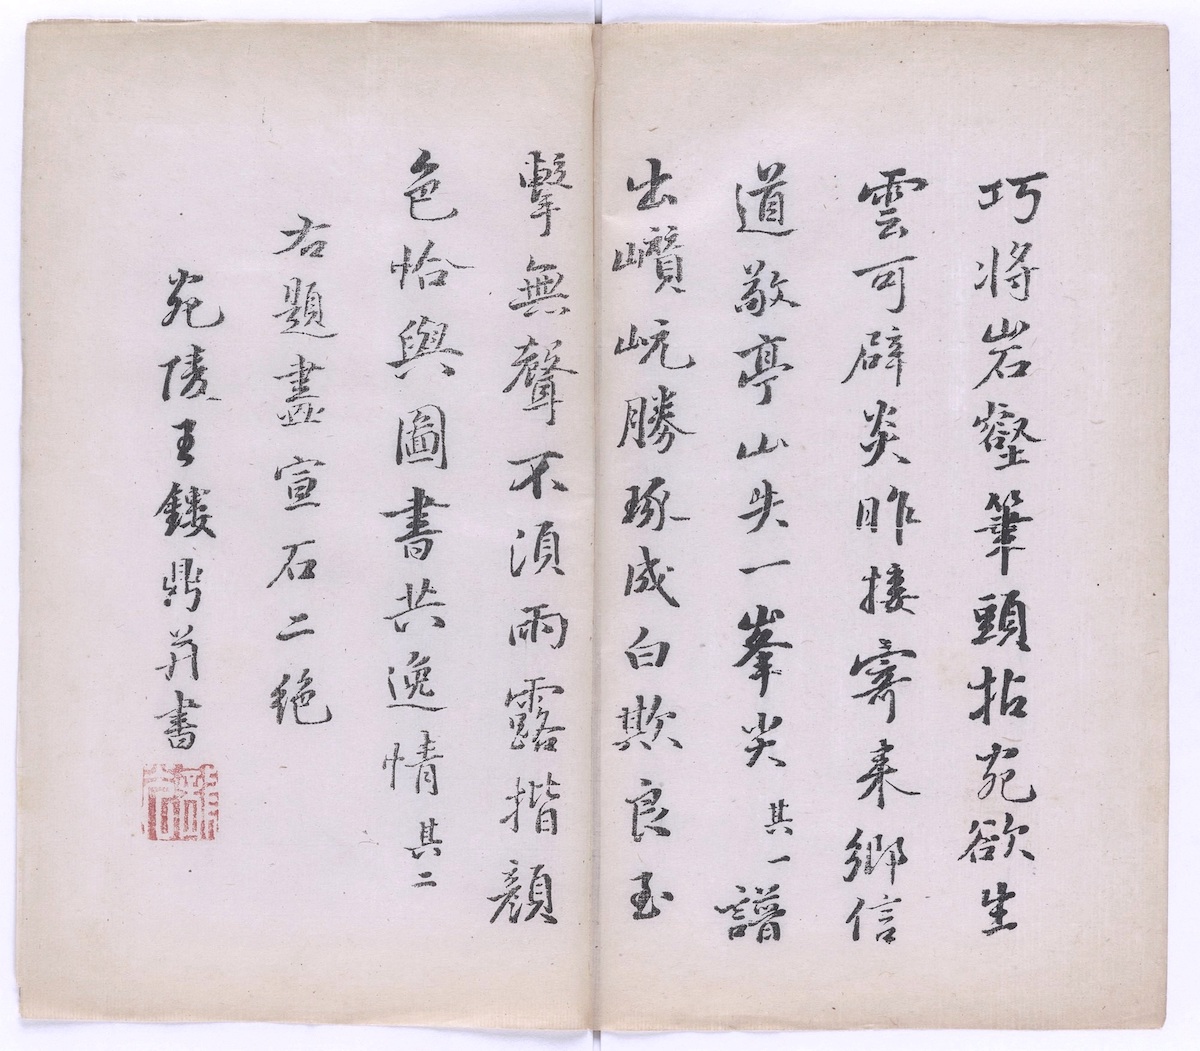 巧將岩壑筆頭拈宛欲生
雲可辟炎昨接寄來鄉信
道敬亭山失一峯尖其一譜
出巑岏勝琢成白欺良玉
擊無聲不須雨露揩顏
色恰與圖書共逸情其二
右題畫宣石二絕
宛陵王鏤鼎并書